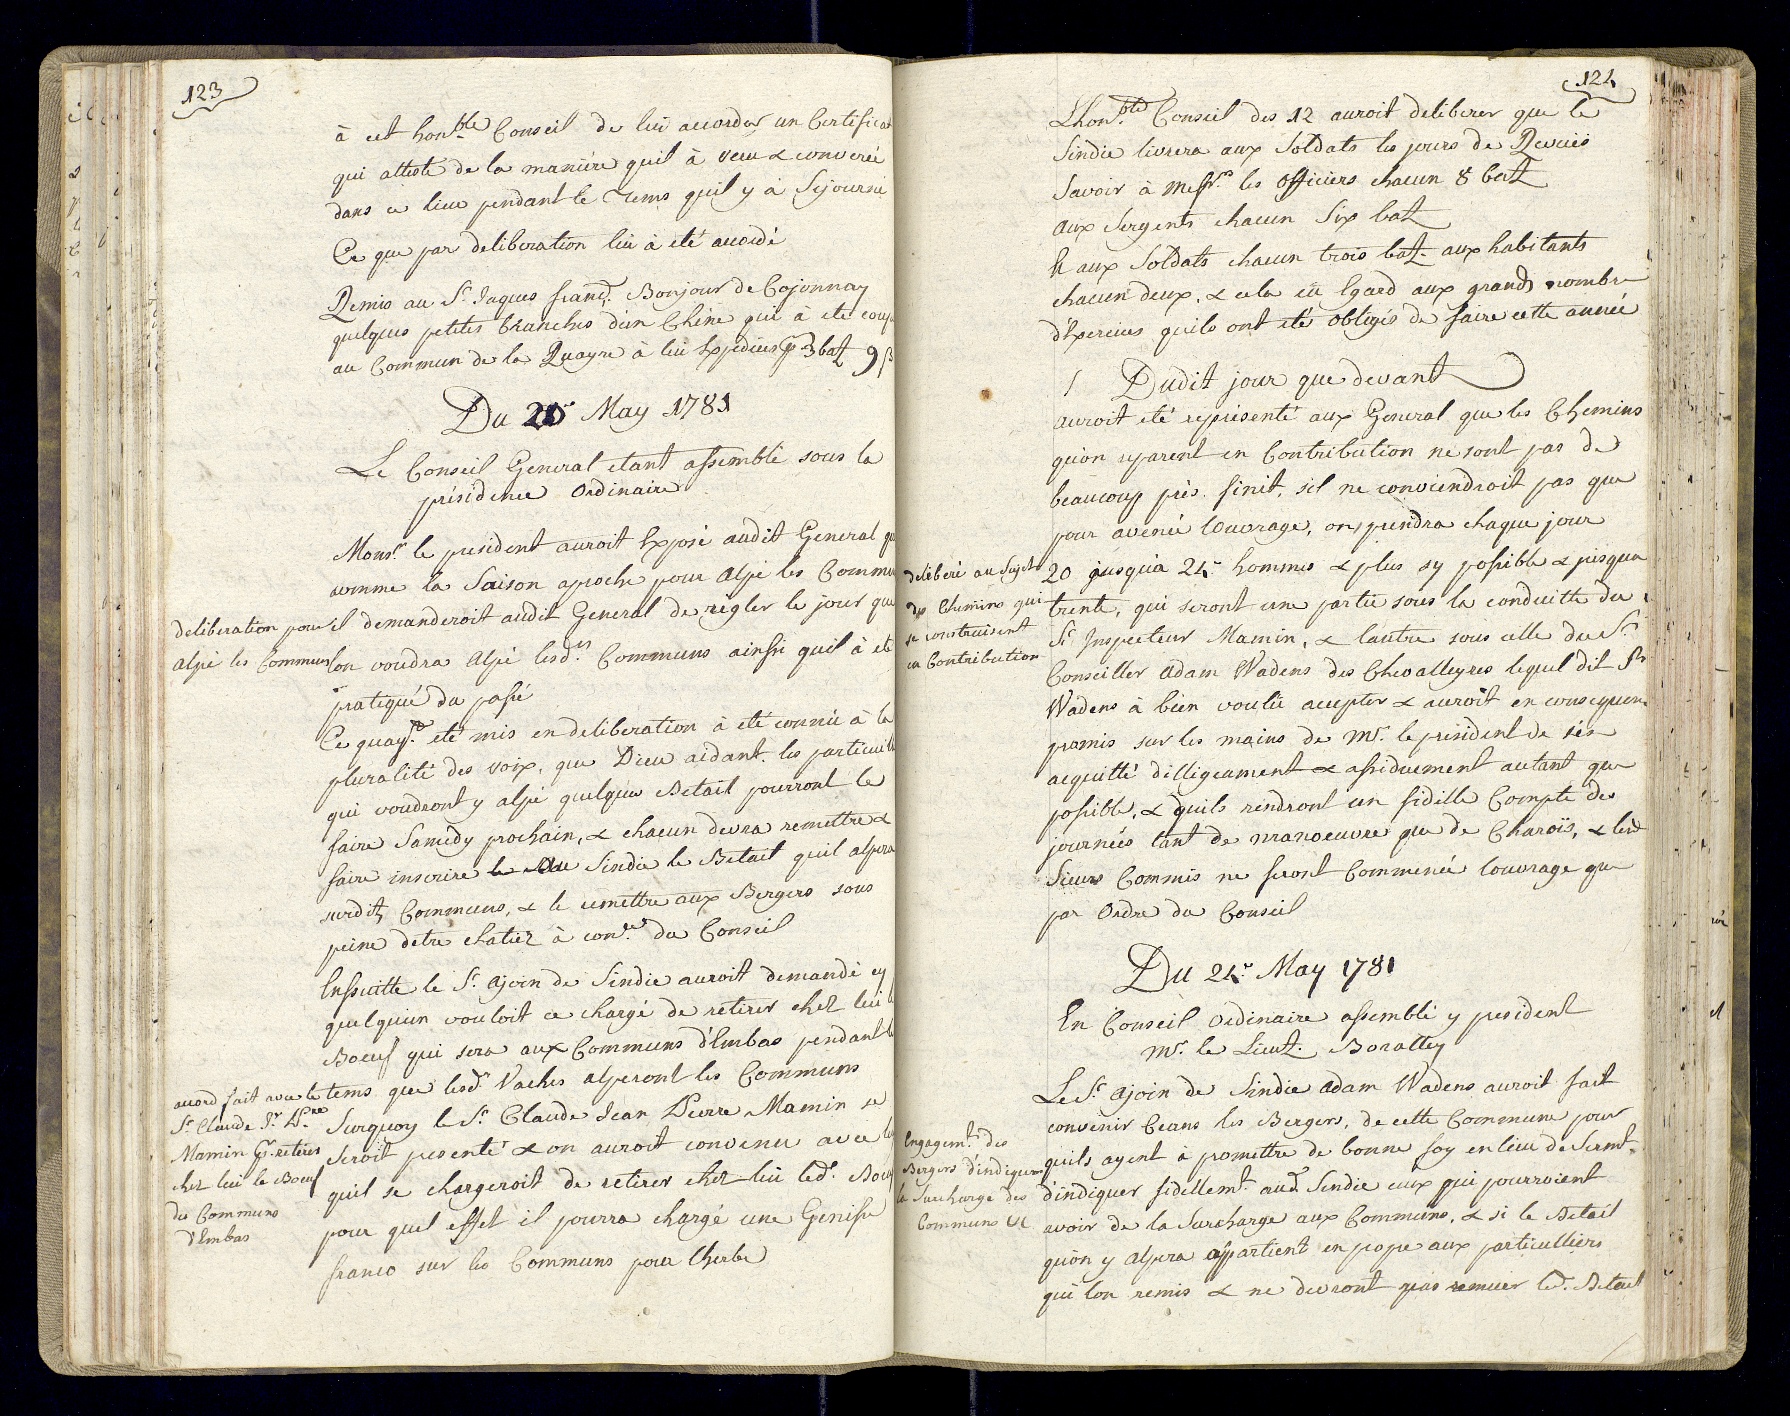 123
à cet hon.ble Conseil de lui accorder un Certificat
qui atteste de la maniére quil à vecu & conversé
dans ce lieu pendant le Tems quil y à Sejourné
Ce que par deliberation lui à eté accordé
Remis au Sr. Jaques franç. Bonjour de Cojonnay
quelques petites branches d'un Chêne qui à eté coup
au Commun de la Quayre à lui Expediées pr 3 batz 9 ß
Du 21r May 1781
Le Conseil General etant assemblé sous la
présidence Ordinaire
Monsr. le president auroit Exposé audit General qu
comme la Saison aproche pour alpé les Commu
deliberation pour
alpé les Communs
il demanderoit audit General de régler le jour que
lon voudra alpé lesd.ts Communs ainsi quil à eté
pratiqué du passé
Ce quayt. eté mis en deliberation à eté connû à la
pluralité des voix, que Dieu aidant. les particuli
qui voudront y alpé quelques Betail pourront le
faire Samedy prochain, & chacun devra remettre &
faire inscrire le au Sindic le Betail quil alpera
surdits Communs, & le remettre aux Bergers sous
peine detre chatiez à con.ce du Conseil
Enssuitte le Sr. ajoin de Sindic auroit demandé sy
quelquun vouloit ce chargé de retirer chez lui l
Boeuf qui sera aux Communs d'Embas pendant le
accord fait avec le
Sr. Claude Jn. P.re
Mamin pr. retirer
chez lui le Boeuf
des Communs
d'Embas
tems que lesd. Vaches alperont les Communs
Surquoy le Sr. Claude Jean Pierre Mamin se
seroit presenté & on auroit convenu avec lui
quil se chargeroit de retirer chez lui led. Boeu
pour quel effet il pourra chargé une Genisse
franco sur les Communs pour lherbe
124
Lhon.ble Conseil des 12 auroit deliberer que le
Sindic livrera aux Soldats les jours de Revües
Savoir à Messrs. les officiers chacun 8 batz
aux Sergents chacun Six batz
Et aux Soldats chacun trois batz. aux habitants
chacun deux, & cela eü Egard aux grands nombre
d'Exercices quils ont eté obligés de faire cette année
Dudit jour que devant
auroit eté representé aux General que les Chemins
quon reparent en Contribution ne sont pas de
beaucoup près finit, sil ne conviendroit pas que
pour avencé louvrage, on prendra chaque jour
deliberé au Sujet
des Chemins qui
se construisent
en Contribution
20 jusquà 24r hommes & plus sy possible & jusqua
trente, qui seront une partie sous la conduitte du
Sr. Inspecteur Mamin, & lautre sous celle du Sr.
Conseiller Adam Wadens des Chevalleyres lequel dit Sr
Wadens à bien voulû accepter & auroit en consequen
promis sur les mains de Mr. le président de sén
acquitté dilligeament & assiduement autant que
possible, & quils rendront un fidelle Compte des
journées tant de manoeuvre que de Charois, & lesd
Sieurs Commis ne feront Commencé louvrage que
par Ordre du Conseil
Du 24r. May 1781
En Conseil Ordinaire assemblé y president
Mr. le Lieut. Boratley
Le Sr. ajoin de Sindic Adam Wadens auroit fait
convenir Ceans les Bergers, de cette Commune pour
Engagemt. des
Bergers d'indiquer
la Surcharge des
Communs &c
quils ayent à promettre de bonne foy en lieu de Sermt.
d'indiquer fidellemt. aud. Sindic ceux qui pourroient
avoir de la Surcharge aux Communs, & si le Betail
quon y alpera appartient en prope aux particulliers
qui lon remis & ne devront pas remuer led. Betail